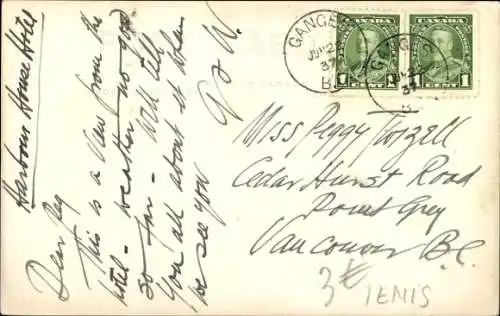 Harbour House Hotel
Dear Peg
This is a view from the
hotel - weather no good
so far - Will tell
you all about it when
we see you
G & W.
GANGES
JUN 2
37
B.
CANADA
1 CENT 1
CANADA
1 CENT 1
GANGES
37
B
Miss Peggy
Cedar Hurst Road
Point Grey
Vancouver B.C.
3€ IENIS